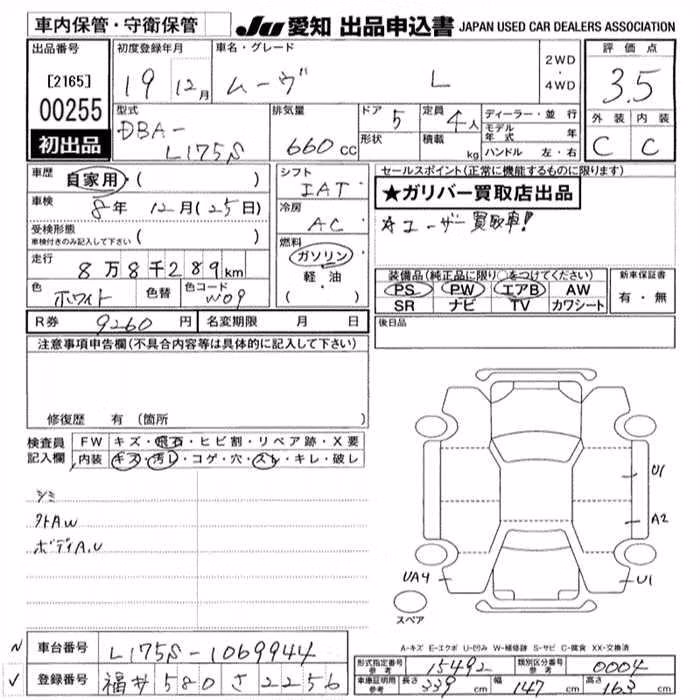 車内保管・守衛保管
JU 愛知 出品申込書 JAPAN USED CAR DEALERS ASSOCIATION
出品番号
[2165]
00255
初出品
初度登録年月
19 12月
車名・グレード
ムーヴ L
2WD
・
4WD
評価点
3.5
外装 内装
C C
型式
DBA-
L175S
排気量
660cc
ドア 5
形状
定員 4人
積載 kg
ディーラー・並行
モデル年式 年
ハンドル 左・右
車歴 自家用・( )
車検 8年 12月(25日)
受検形態
車検付きのみ記入して下さい ( )
走行 8万8千289km
色 ホワイト 色替 色コード W09
シフト
IAT
冷房
AC
燃料
ガソリン
軽油
( )
セールスポイント(正常に機能するものに限ります)
★ガリバー買取店出品
☆ユーザー買取車!
装備品(純正品に限り○をつけてください)
PS PW エアB AW
SR ナビ TV カワシート
新車保証書
有・無
R券 9260円 名変期限 月 日
後日品
注意事項申告欄(不具合内容等は具体的に記入して下さい)
修復歴 有 (箇所 )
検査員
記入欄
FW キズ・飛石・ヒビ割・リペア跡・X要
内装 キズ・汚レ・コゲ・穴・スレ・キレ・破レ
シミ
外AW
ボディA,U
U1
A2
UA4
U1
スペア
A-キズ E-エクボ U-凹み W-補修跡 S-サビ C-腐食 XX-交換済
車台番号 L175S-1069944
登録番号 福井580さ2256
型式指定番号
参考
15492
類別区分番号
参考
0004
車庫証明用
参考
長さ 339cm 幅 147cm 高さ 163cm